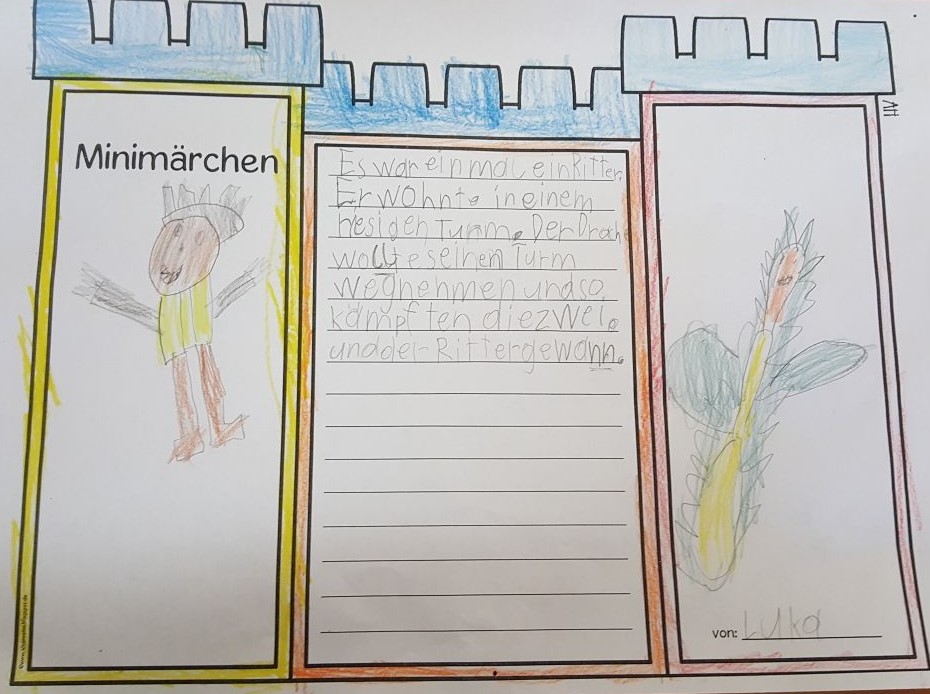 Minimärchen
Es war einmal ein Ritter.
Er wohnte in einem
riesigen Turm. Der Drach
wollte seinen Turm
wegnehmen und so
kämpften die zwei.
und der Ritter gewann.
von: Luka
AH